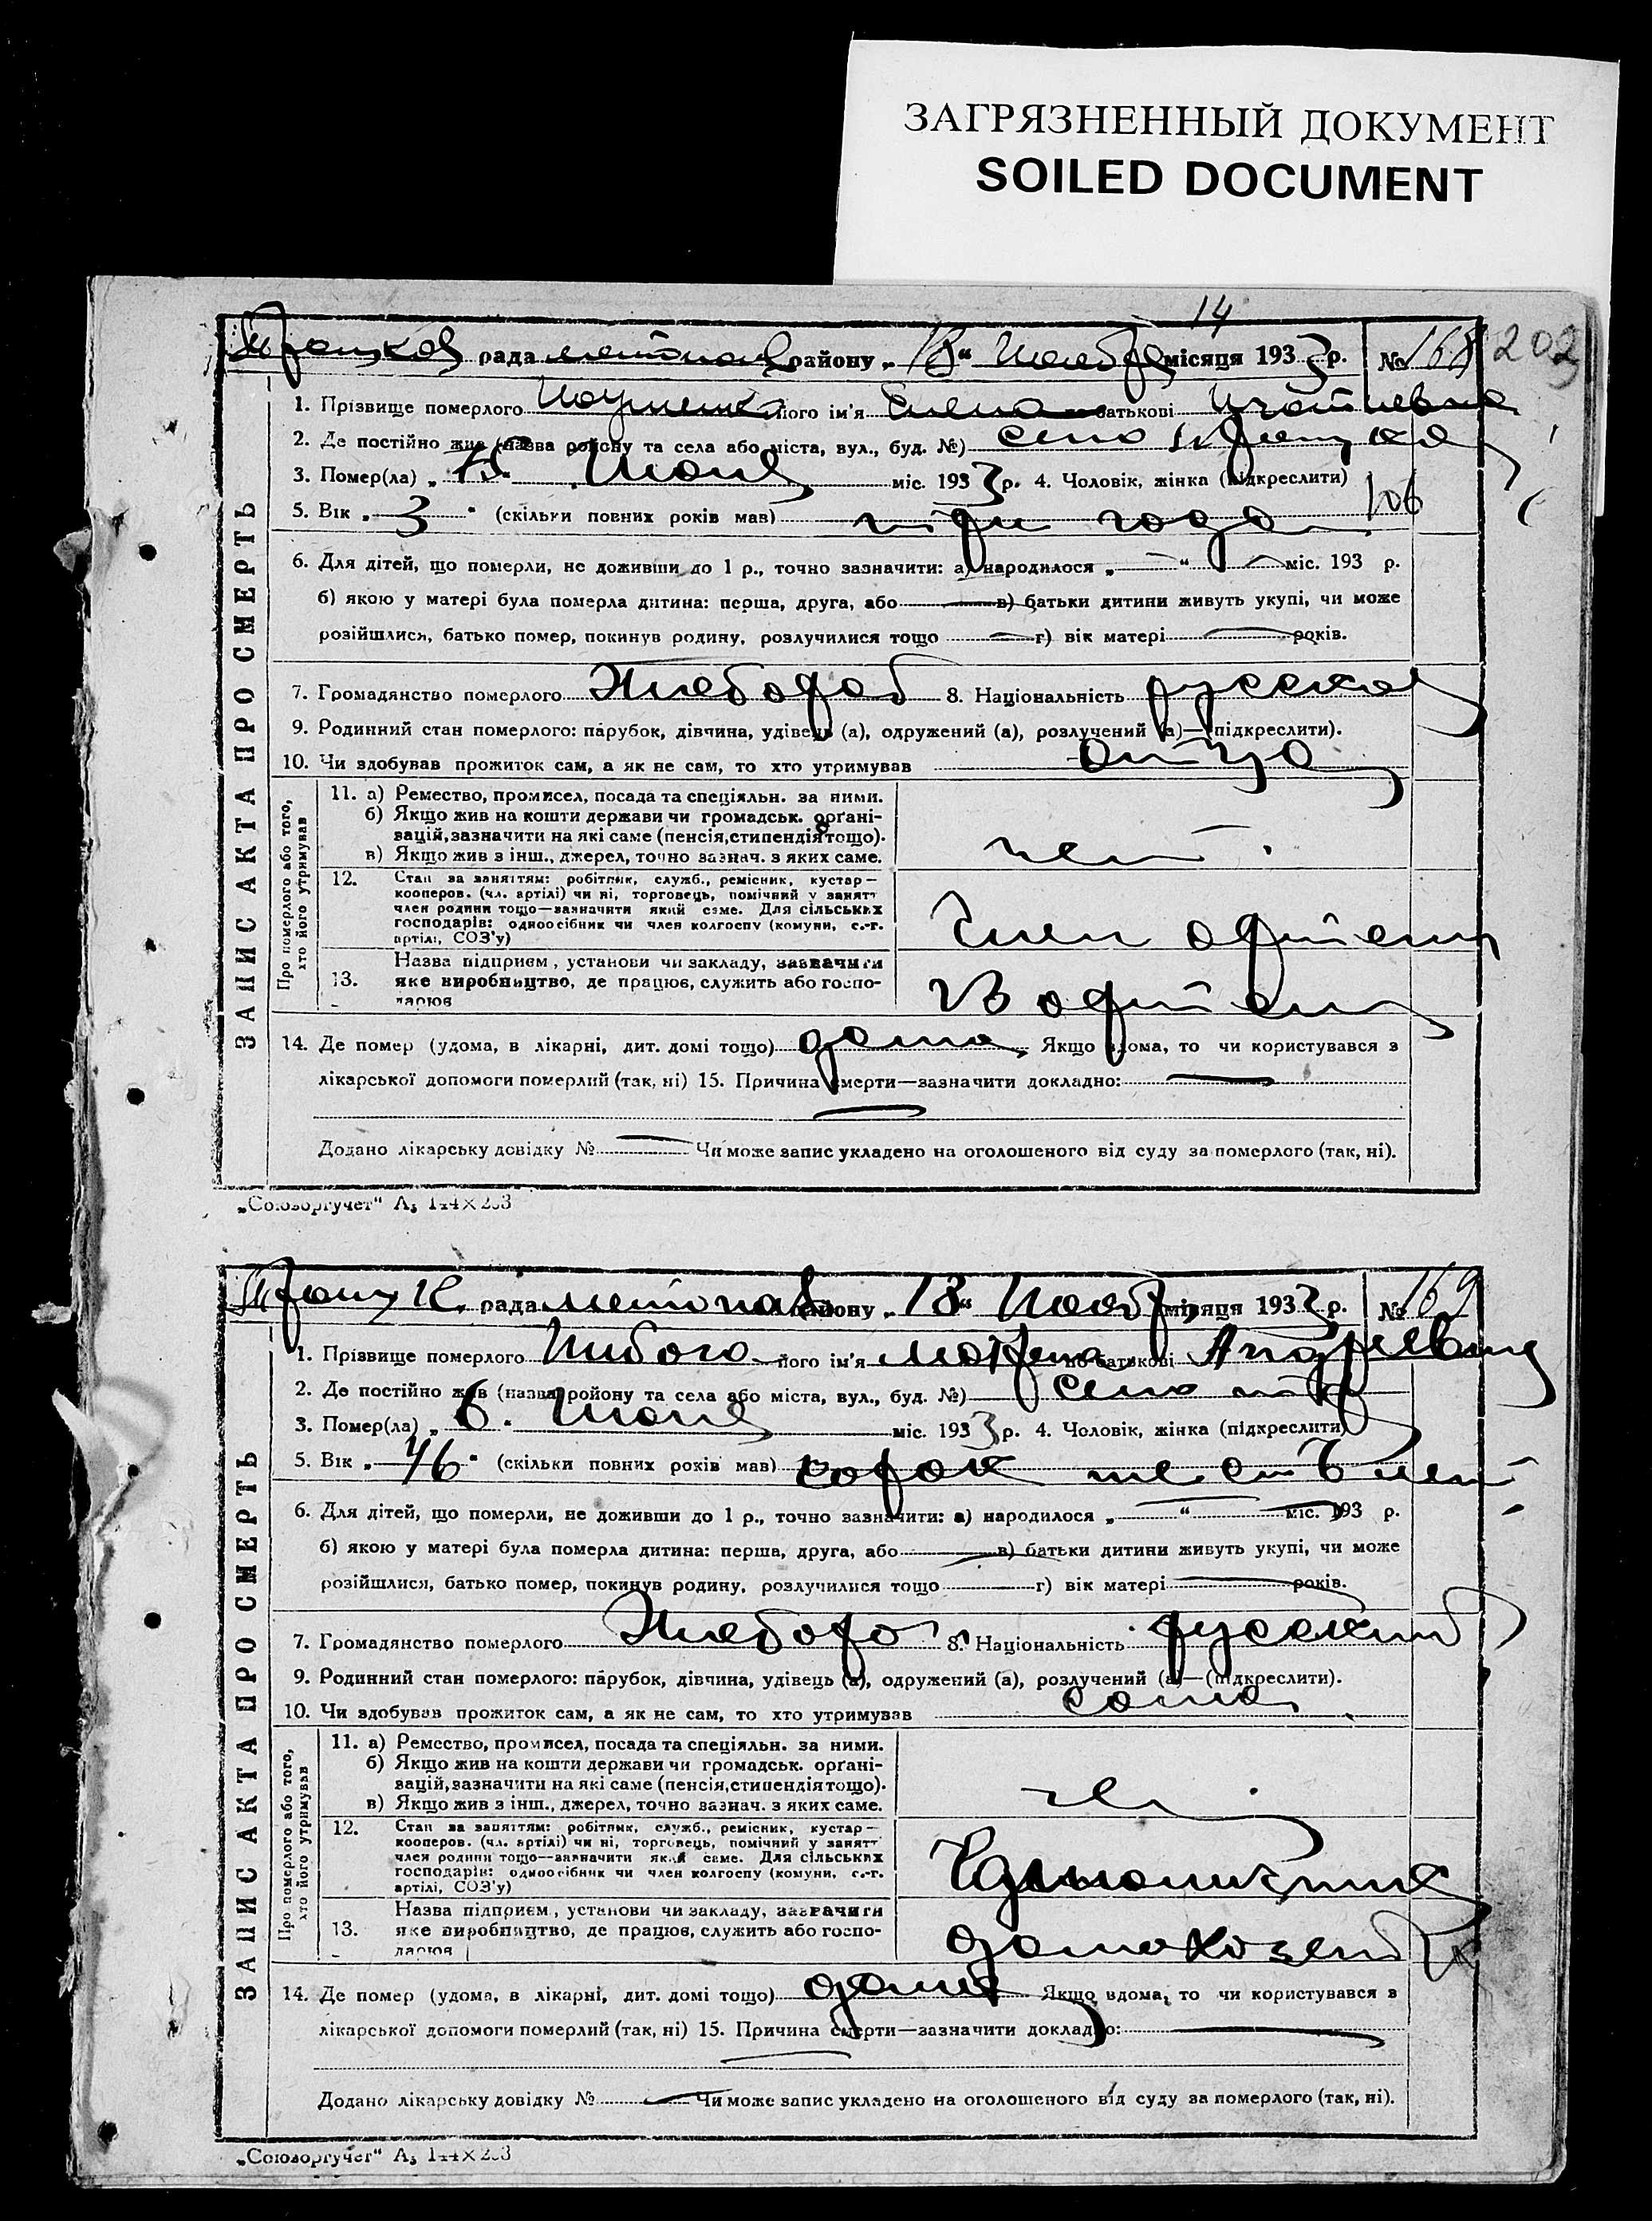 ЗАГРЯЗНЕННЫЙ ДОКУМЕНТ
SOILED DOCUMENT
14
рада району „18“ місяця 1933 р. № 168 202
1. Прізвище померлого його ім'я Елена по батькові
2. Де постійно жив (назва району та села або міста, вул., буд. №) село
3. Помер(ла) „ міс. 1933 р. 4. Чоловік, жінка (підкреслити)
106
5. Вік „ 3 “ (скільки повних років мав) три года
6. Для дітей, що померли, не доживши до 1 р., точно зазначити: а) народилося „ — “ — міс. 193 р.
б) якою у матері була померла дитина: перша, друга, або — в) батьки дитини живуть укупі, чи може
розійшлися, батько помер, покинув родину, розлучилися тощо — г) вік матері — років.
7. Громадянство померлого Хлебороб 8. Національність русская
9. Родинний стан померлого: парубок, дівчина, удівець (а), одружений (а), розлучений (а)—(підкреслити).
10. Чи здобував прожиток сам, а як не сам, то хто утримував отца
ЗАПИС АКТА ПРО СМЕРТЬ
Про померлого або того, хто його утримував
11. а) Ремество, промисел, посада та спеціяльн. за ними.
б) Якщо жив на кошти держави чи громадськ. органі-
зацій, зазначити на які саме (пенсія, стипендія тощо).
в) Якщо жив з інш., джерел, точно зазнач. з яких саме.
нет
12. Стан за заняттям: робітник, служб., ремісник, кустар—
кооперов. (чл. артілі) чи ні, торговець, помічний у занятт
член родини тощо—зазначити який саме. Для сільських
господарів: одноосібник чи член колгоспу (комуни, с.-г.
артілі, СОЗ'у)
Член артели
13. Назва підприєм., установи чи закладу, зазначити
яке виробництво, де працюв, служить або госпо-
дарюв
В артели
14. Де помер (удома, в лікарні, дит. домі тощо) дома Якщо вдома, то чи користувався з
лікарської допомоги померлий (так, ні) 15. Причина смерти—зазначити докладно: —
—
Додано лікарську довідку № — Чи може запис укладено на оголошеного від суду за померлого (так, ні).
„Союзоргучет“ А₅ 144×203
рада району „18“ місяця 1933 р. № 169
1. Прізвище померлого його ім'я по батькові Андреевна
2. Де постійно жив (назва району та села або міста, вул., буд. №) село
3. Помер(ла) „ 6. міс. 1933 р. 4. Чоловік, жінка (підкреслити)
5. Вік „ 46 “ (скільки повних років мав) сорок шесть лет
6. Для дітей, що померли, не доживши до 1 р., точно зазначити: а) народилося „ — “ — міс. 193 р.
б) якою у матері була померла дитина: перша, друга, або — в) батьки дитини живуть укупі, чи може
розійшлися, батько помер, покинув родину, розлучилися тощо г) вік матері — років.
7. Громадянство померлого Хлебороб 8. Національність русский
9. Родинний стан померлого: парубок, дівчина, удівець (а), одружений (а), розлучений (а)—(підкреслити).
10. Чи здобував прожиток сам, а як не сам, то хто утримував сама
ЗАПИС АКТА ПРО СМЕРТЬ
Про померлого або того, хто його утримував
11. а) Ремество, промисел, посада та спеціяльн. за ними.
б) Якщо жив на кошти держави чи громадськ. органі-
зацій, зазначити на які саме (пенсія, стипендія тощо).
в) Якщо жив з інш., джерел, точно зазнач. з яких саме.
12. Стан за заняттям: робітник, служб., ремісник, кустар—
кооперов. (чл. артілі) чи ні, торговець, помічний у занятт
член родини тощо—зазначити який саме. Для сільських
господарів: одноосібник чи член колгоспу (комуни, с.-г.
артілі, СОЗ'у)
13. Назва підприєм., установи чи закладу, зазначити
яке виробництво, де працюв, служить або госпо-
дарюв
14. Де помер (удома, в лікарні, дит. домі тощо) дома Якщо вдома, то чи користувався з
лікарської допомоги померлий (так, ні) 15. Причина смерти—зазначити докладно: —
—
Додано лікарську довідку № — Чи може запис укладено на оголошеного від суду за померлого (так, ні).
„Союзоргучет“ А₅ 144×203